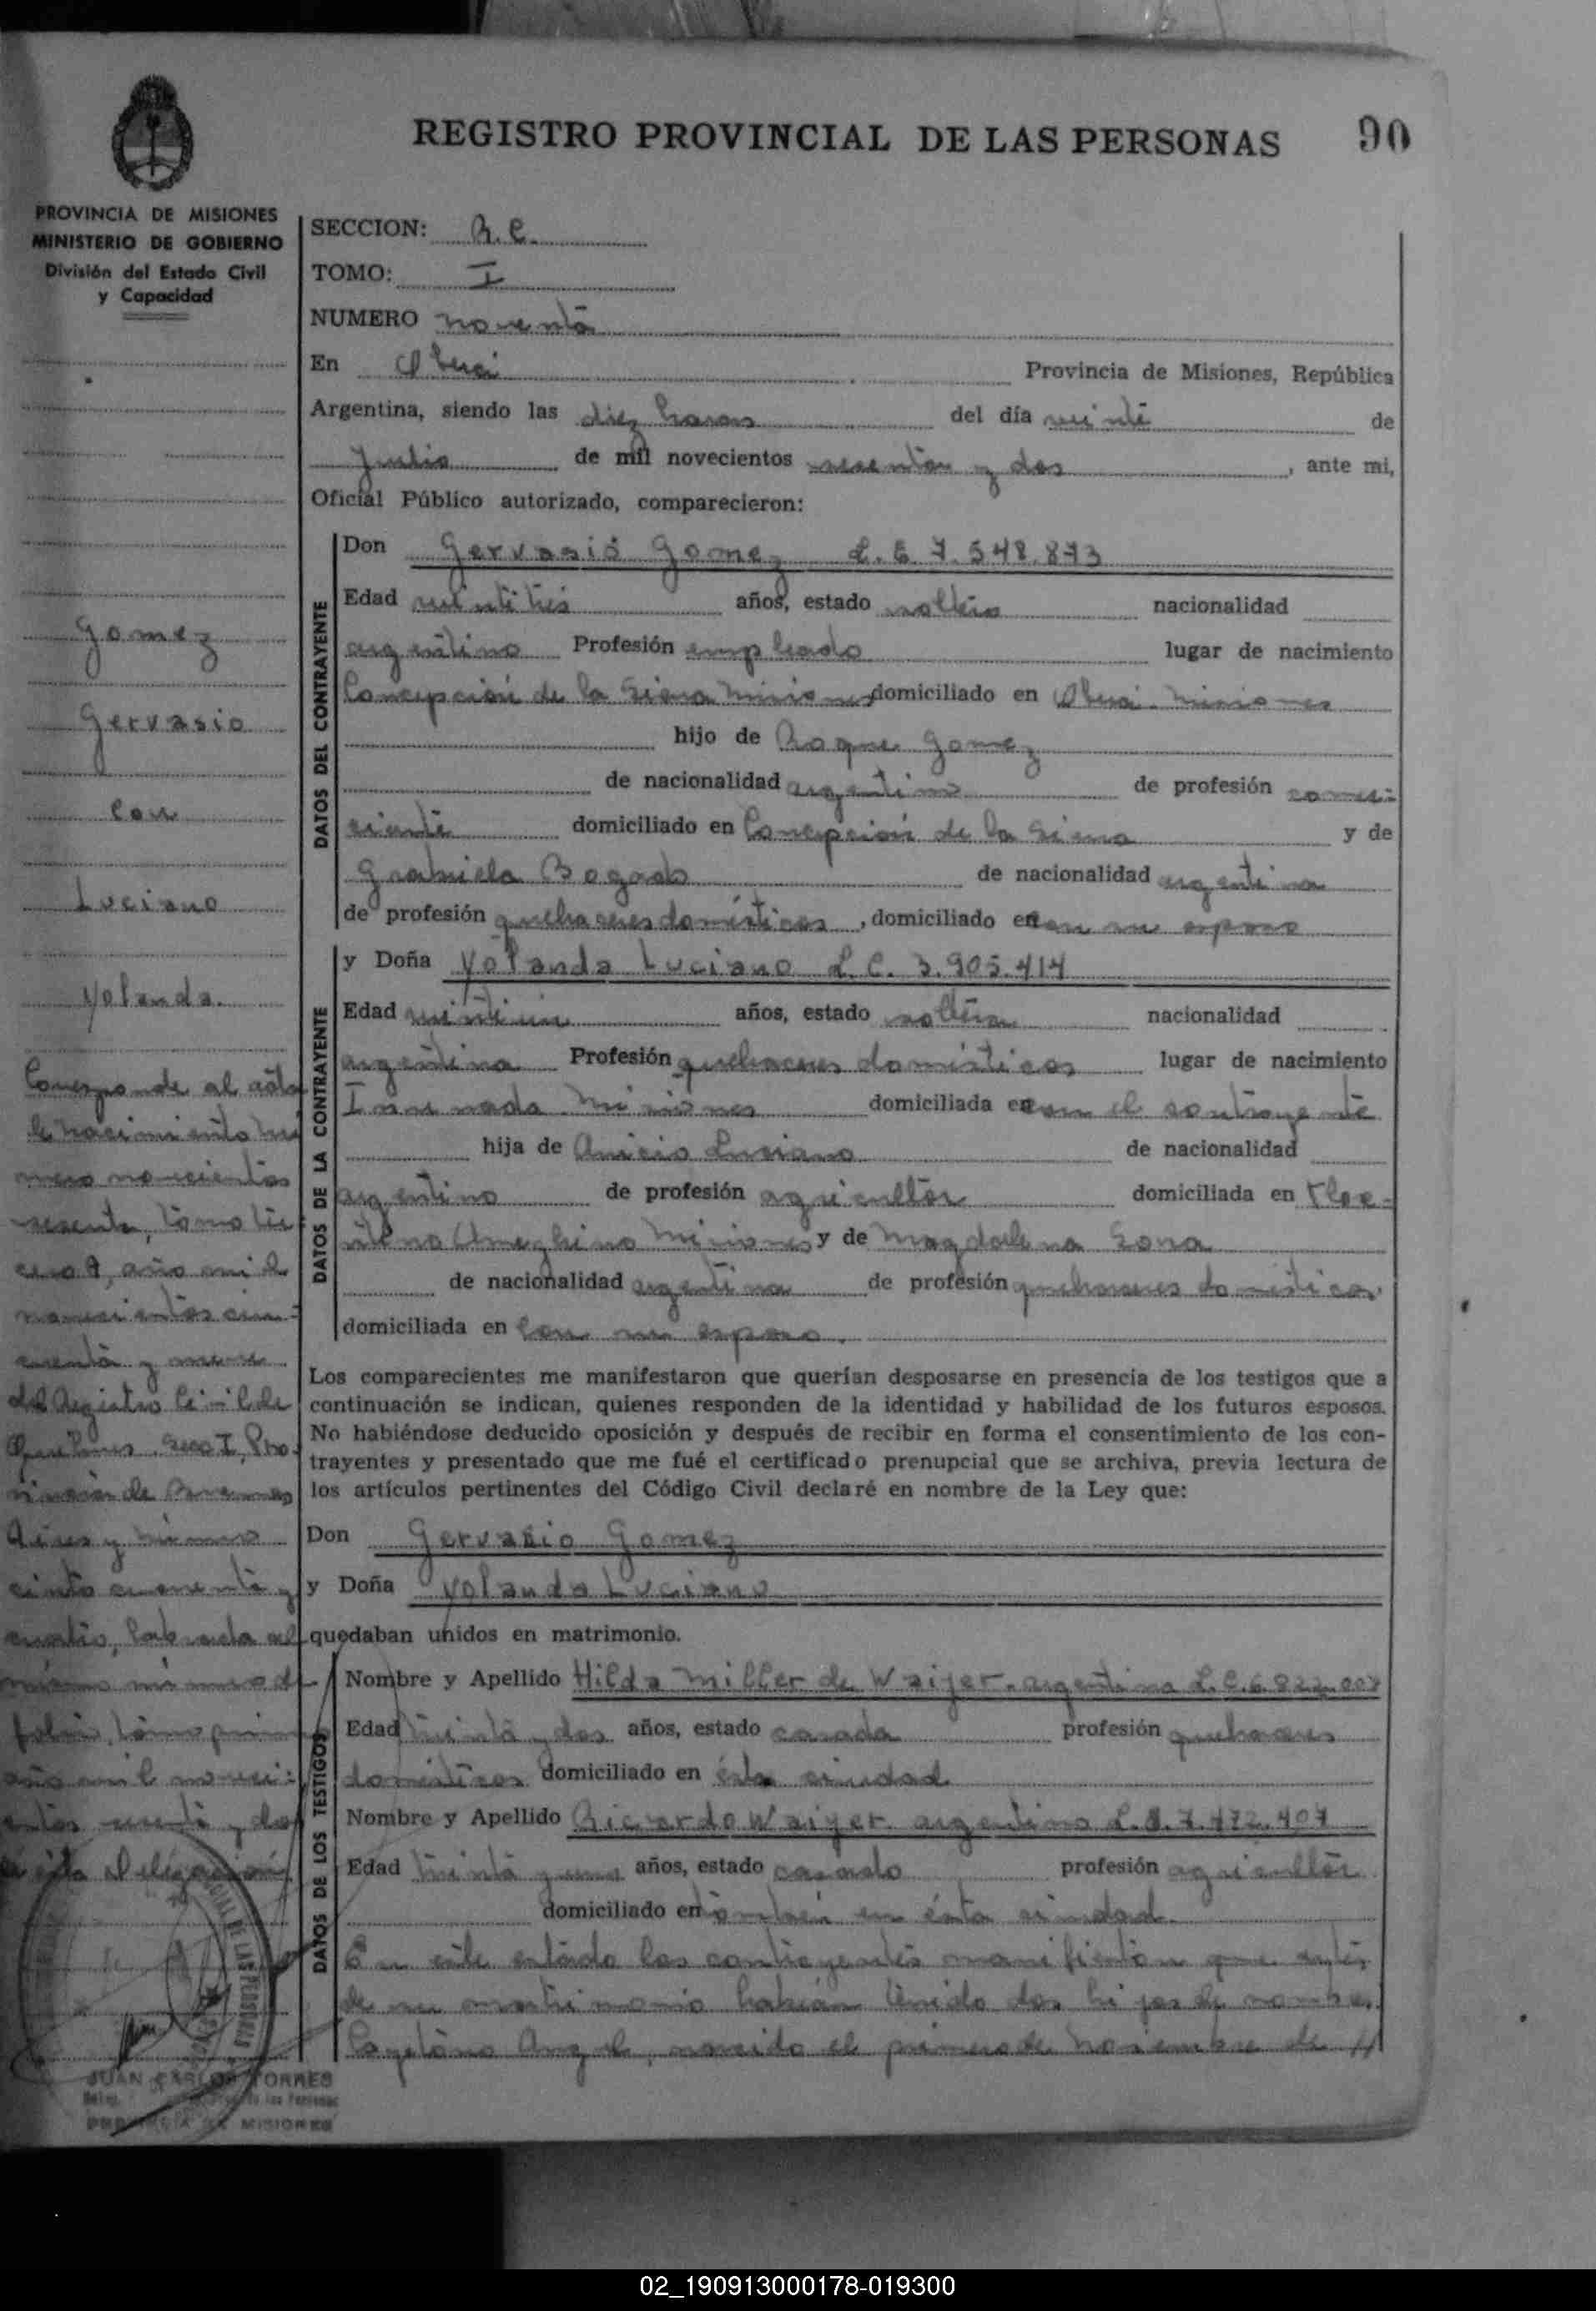 REGISTRO PROVINCIAL DE LAS PERSONAS
90
PROVINCIA DE MISIONES
MINISTERIO DE GOBIERNO
División del Estado Civil
y Capacidad
Gomez
Gervasio
con
Luciano
Yolanda.
Corresponde al acta
de nacimiento nú
mero novecientos
sesenta, tomo ter
cero A, año mil
novecientos cin=
cuenta y nueve
del Registro Civil de
Quilmes, Secc I, Pro
vincia de Buenos
Aires y número
ciento cuarenta y
cuatro, labrada al
mismo número de
folio, tomo primero
año mil noveci=
entos sesenta y dos
de esta delegación
JUAN CARLOS TORRES
PROVINCIA DE MISIONES
SECCION: R. C.
TOMO: I
NUMERO noventa
En Oberá Provincia de Misiones, República
Argentina, siendo las diez horas del día veinte de
Julio de mil novecientos sesenta y dos, ante mi,
Oficial Público autorizado, comparecieron:
DATOS DEL CONTRAYENTE
Don Gervasio Gomez L. E 7.548.873
Edad veintitrés años, estado soltero nacionalidad
argentino Profesión empleado lugar de nacimiento
Concepción de la Sierra Misiones domiciliado en Oberá. Misiones
hijo de Roque Gomez
de nacionalidad argentino de profesión comer=
ciante domiciliado en Concepción de la Sierra y de
Grabiela Bogado de nacionalidad argentina
de profesión quehaceres domésticos, domiciliado en con su esposo
DATOS DE LA CONTRAYENTE
y Doña Yolanda Luciano L. C. 3.905.414
Edad veintiún años, estado soltera nacionalidad
argentina Profesión quehaceres domésticos lugar de nacimiento
Ensenada Misiones domiciliada en con el contrayente
hija de Anicio Luciano de nacionalidad
argentino de profesión agricultor domiciliada en Flor=
entino Ameghino Misiones y de Magdalena Sosa
de nacionalidad argentina de profesión quehaceres domésticos
domiciliada en Con su esposo.
Los comparecientes me manifestaron que querían desposarse en presencia de los testigos que a
continuación se indican, quienes responden de la identidad y habilidad de los futuros esposos.
No habiéndose deducido oposición y después de recibir en forma el consentimiento de los con-
trayentes y presentado que me fué el certificado prenupcial que se archiva, previa lectura de
los artículos pertinentes del Código Civil declaré en nombre de la Ley que:
Don Gervasio Gomez
y Doña Yolanda Luciano
quedaban unidos en matrimonio.
DATOS DE LOS TESTIGOS
Nombre y Apellido Hilda Miller de Waijer. argentina L. C. 6.822.007
Edad treinta y dos años, estado casada profesión quehaceres
domésticos domiciliado en ésta ciudad
Nombre y Apellido Ricardo Waijer argentino L. E. 7.472.407
Edad treinta y uno años, estado casado profesión agricultor
domiciliado en también en ésta ciudad.
En este estado los contrayentes manifiestan que antes
de su matrimonio habían tenido dos hijos de nombre,
Cayetano Angel, nacido el primero de noviembre de //
02_190913000178-019300